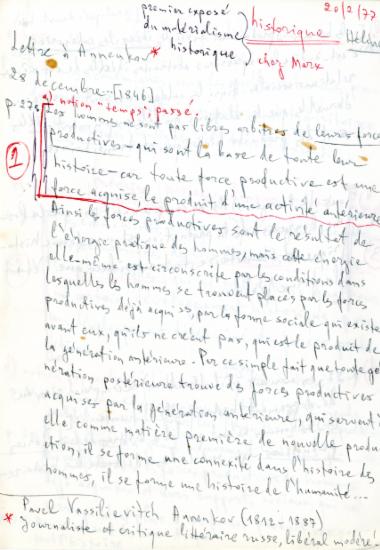 20/2/77
premier exposé
du matérialisme
historique
historique
chez Marx
Hélène
Lettre à Annenkov *
28 décembre [1846]
a) notion "temps", passé.
p. 27
Les hommes ne sont pas libres arbitres de leurs forces
productives - qui sont la base de toute leur
1
histoire - car toute force productive est une
force acquise, le produit d'une activité antérieure.
Ainsi les forces productives sont le résultat de
l'énergie pratique des hommes, mais cette énergie
elle-même est circonscrite par les conditions dans
lesquelles les hommes se trouvent placés, par les forces
productives déjà acquises, par la forme sociale qui existe
avant eux, qu'ils ne créent pas, qui est le produit de
la génération antérieure. Par ce simple fait que toute gé-
nération postérieure trouve des forces productives
acquises par la génération antérieure, qui servent à
elle comme matière première de nouvelle produ-
ction, il se forme une connexité dans l'histoire des
hommes, il se forme une histoire de l'humanité...
Pavel Vassilievitch Annenkov (1812-1887)
* journaliste et critique littéraire russe, libéral modéré